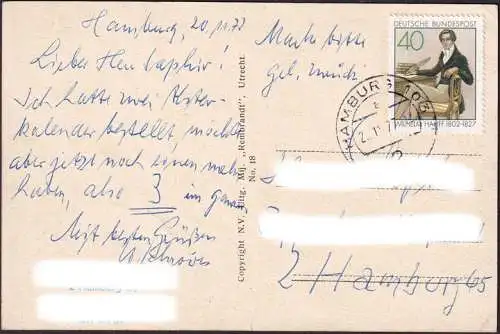 Hamburg, 20.11.77
Lieber Herr
Ich hatte zwei
kalender bestellt, möchte
aber jetzt noch einen mehr
haben, also 3 im ganzen
Mit besten Grüßen
Marke bitte
gel. zurück
Copyright N.V. Uitg. Mij. „Rembrandt", Utrecht.
No. 18
DEUTSCHE BUNDESPOST
40
WILHELM HAUFF 1802-1827
HAMBURG 105
2 Hamburg 65